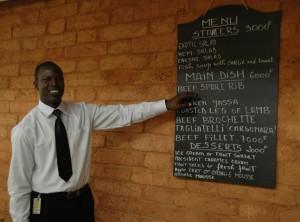 MENU
STARTERS 3000F
EXOTIC SALAD
NEMS SALAD
CAESAR SALAD
Fish Soup with GARLIC and toast
MAIN DISH 6000F
BEEF SPARE RIB
CHICKEN YASSA
ROASTED LEG OF LAMB
BEEF BROCHETTE
TAGLIATELLI CARBONARA
BEEF FILLET 7000F
DESSERTS 2000F
ICE CREAM or FRUIT SORBET
PRESIDENT CARAMEL CREAM
FRUIT SALAD or fresh FRUIT
ORANGE MOUSSE